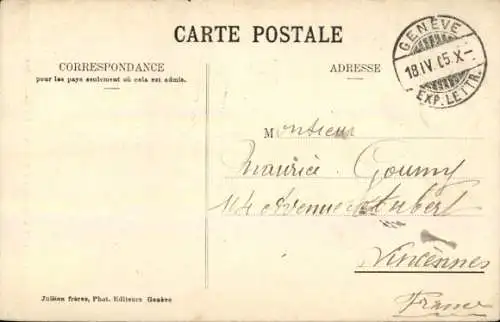 CARTE POSTALE
CORRESPONDANCE
pour les pays seulement où cela est admis.
ADRESSE
GENÈVE
18.IV.05.X-
EXP. LETTR.
Monsieur
Maurice Goumy
114 Avenue Aubert
Vincennes
France
Jullien frères, Phot. Editeurs Genève